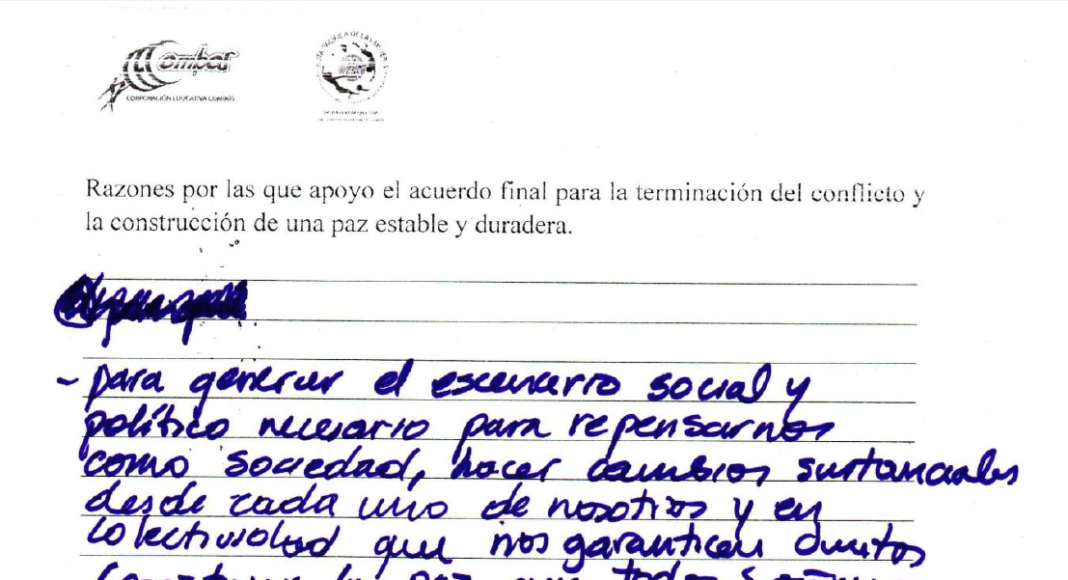 ombos
CORPORACIÓN EDUCATIVA COMBOS
Razones por las que apoyo el acuerdo final para la terminación del conflicto y
la construcción de una paz estable y duradera.
- para generar el escenario social y
político necesario para repensarnos
como sociedad, hacer cambios sustanciales
desde cada uno de nosotros y en
colectividad que nos garanticen
paz que todos